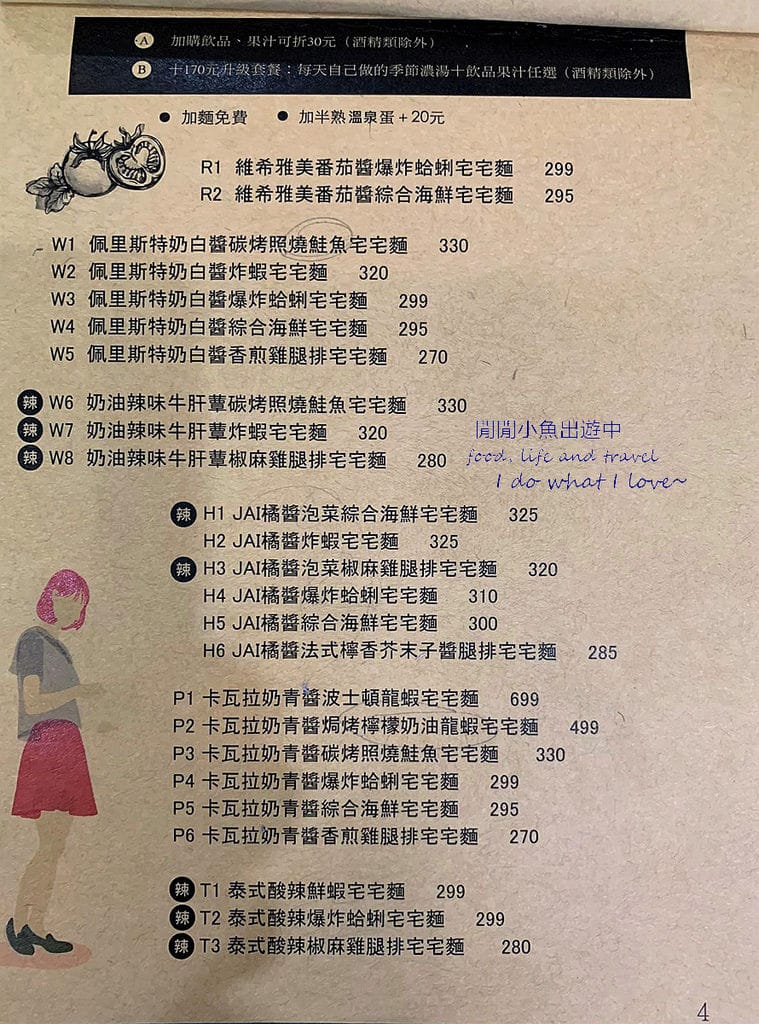 A 加購飲品、果汁可折30元（酒精類除外）
B +170元升級套餐：每天自己做的季節濃湯+飲品果汁任選（酒精類除外）
● 加麵免費 ● 加半熟溫泉蛋+20元
R1 維希雅美番茄醬爆炸蛤蜊宅宅麵 299
R2 維希雅美番茄醬綜合海鮮宅宅麵 295
W1 佩里斯特奶白醬碳烤照燒鮭魚宅宅麵 330
W2 佩里斯特奶白醬炸蝦宅宅麵 320
W3 佩里斯特奶白醬爆炸蛤蜊宅宅麵 299
W4 佩里斯特奶白醬綜合海鮮宅宅麵 295
W5 佩里斯特奶白醬香煎雞腿排宅宅麵 270
辣 W6 奶油辣味牛肝蕈碳烤照燒鮭魚宅宅麵 330
辣 W7 奶油辣味牛肝蕈炸蝦宅宅麵 320
辣 W8 奶油辣味牛肝蕈椒麻雞腿排宅宅麵 280
閒閒小魚出遊中
food, life and travel
I do what I love~
辣 H1 JAI橘醬泡菜綜合海鮮宅宅麵 325
H2 JAI橘醬炸蝦宅宅麵 325
辣 H3 JAI橘醬泡菜椒麻雞腿排宅宅麵 320
H4 JAI橘醬爆炸蛤蜊宅宅麵 310
H5 JAI橘醬綜合海鮮宅宅麵 300
H6 JAI橘醬法式檸香芥末子醬腿排宅宅麵 285
P1 卡瓦拉奶青醬波士頓龍蝦宅宅麵 699
P2 卡瓦拉奶青醬焗烤檸檬奶油龍蝦宅宅麵 499
P3 卡瓦拉奶青醬碳烤照燒鮭魚宅宅麵 330
P4 卡瓦拉奶青醬爆炸蛤蜊宅宅麵 299
P5 卡瓦拉奶青醬綜合海鮮宅宅麵 295
P6 卡瓦拉奶青醬香煎雞腿排宅宅麵 270
辣 T1 泰式酸辣鮮蝦宅宅麵 299
辣 T2 泰式酸辣爆炸蛤蜊宅宅麵 299
辣 T3 泰式酸辣椒麻雞腿排宅宅麵 280
4